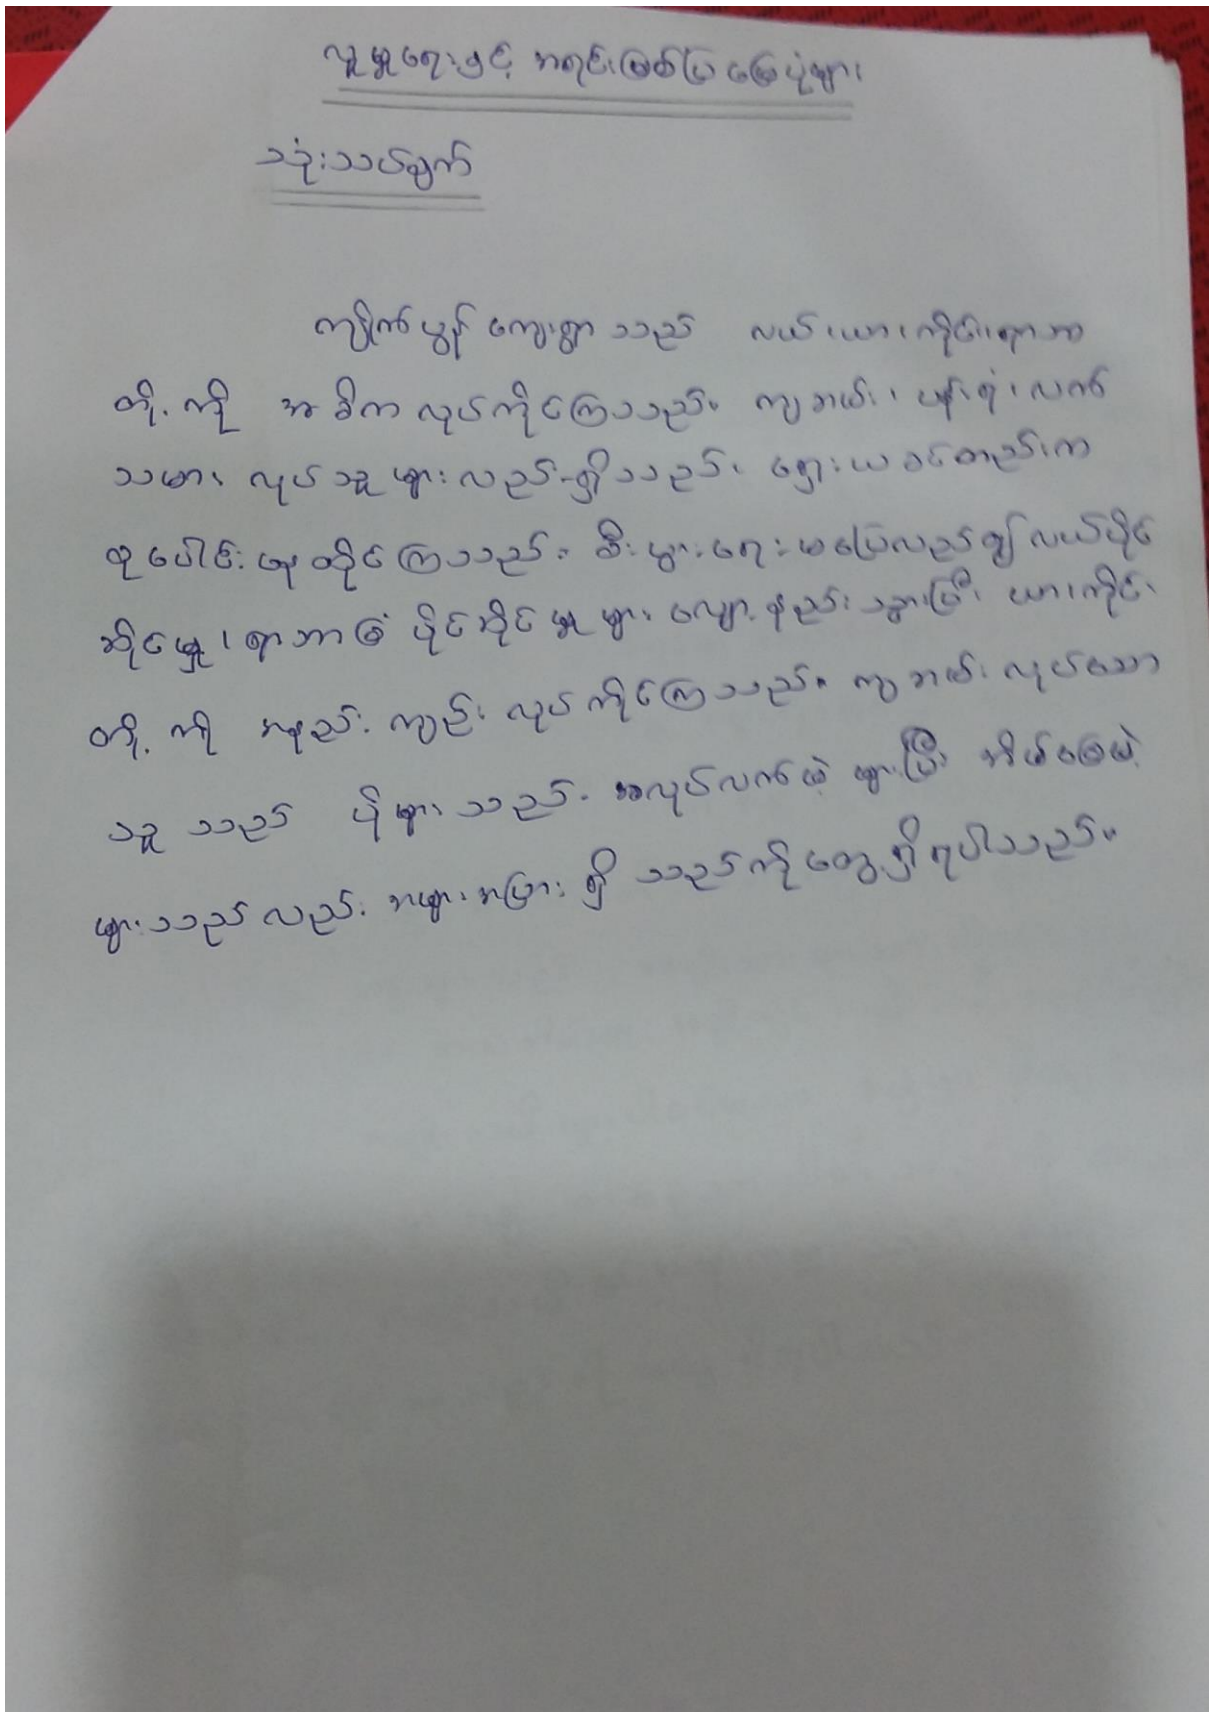 လူမှုရေးနှင့် အရင်းမြစ်ပြ မြေပုံများ
သုံးသပ်ချက်
ကျိုက်ပွန် ကျေးရွာ သည် လယ်၊ ယာ၊ ကိုင်း၊ ရာဘာ
တို့ ကို အဓိက လုပ်ကိုင်ကြသည်။ ကျဘမ်း၊ ပန်းရံ၊ လက်
သမား လုပ်သူ များ လည်း ရှိသည်။ ရှေးယခင်တည်းက
စုပေါင်း နေထိုင်ကြသည်။ စီးပွားရေး မပြေလည်၍ လယ်ပိုင်
ဆိုင်မှု၊ ရာဘာခြံ ပိုင်ဆိုင်မှု များ လျော့နည်း သွားပြီး ယာ၊ ကိုင်း
တို့ ကို အနည်း ကျဉ်း လုပ်ကိုင်ကြသည်။ ကျဘမ်း လုပ်သော
သူ သည် ပိုများ သည်။ အလုပ်လက်မဲ့ များပြီး အိမ်ခြေမဲ့
များသည် လည်း အများအပြား ရှိ သည်ကို တွေ့ရှိရပါသည်။